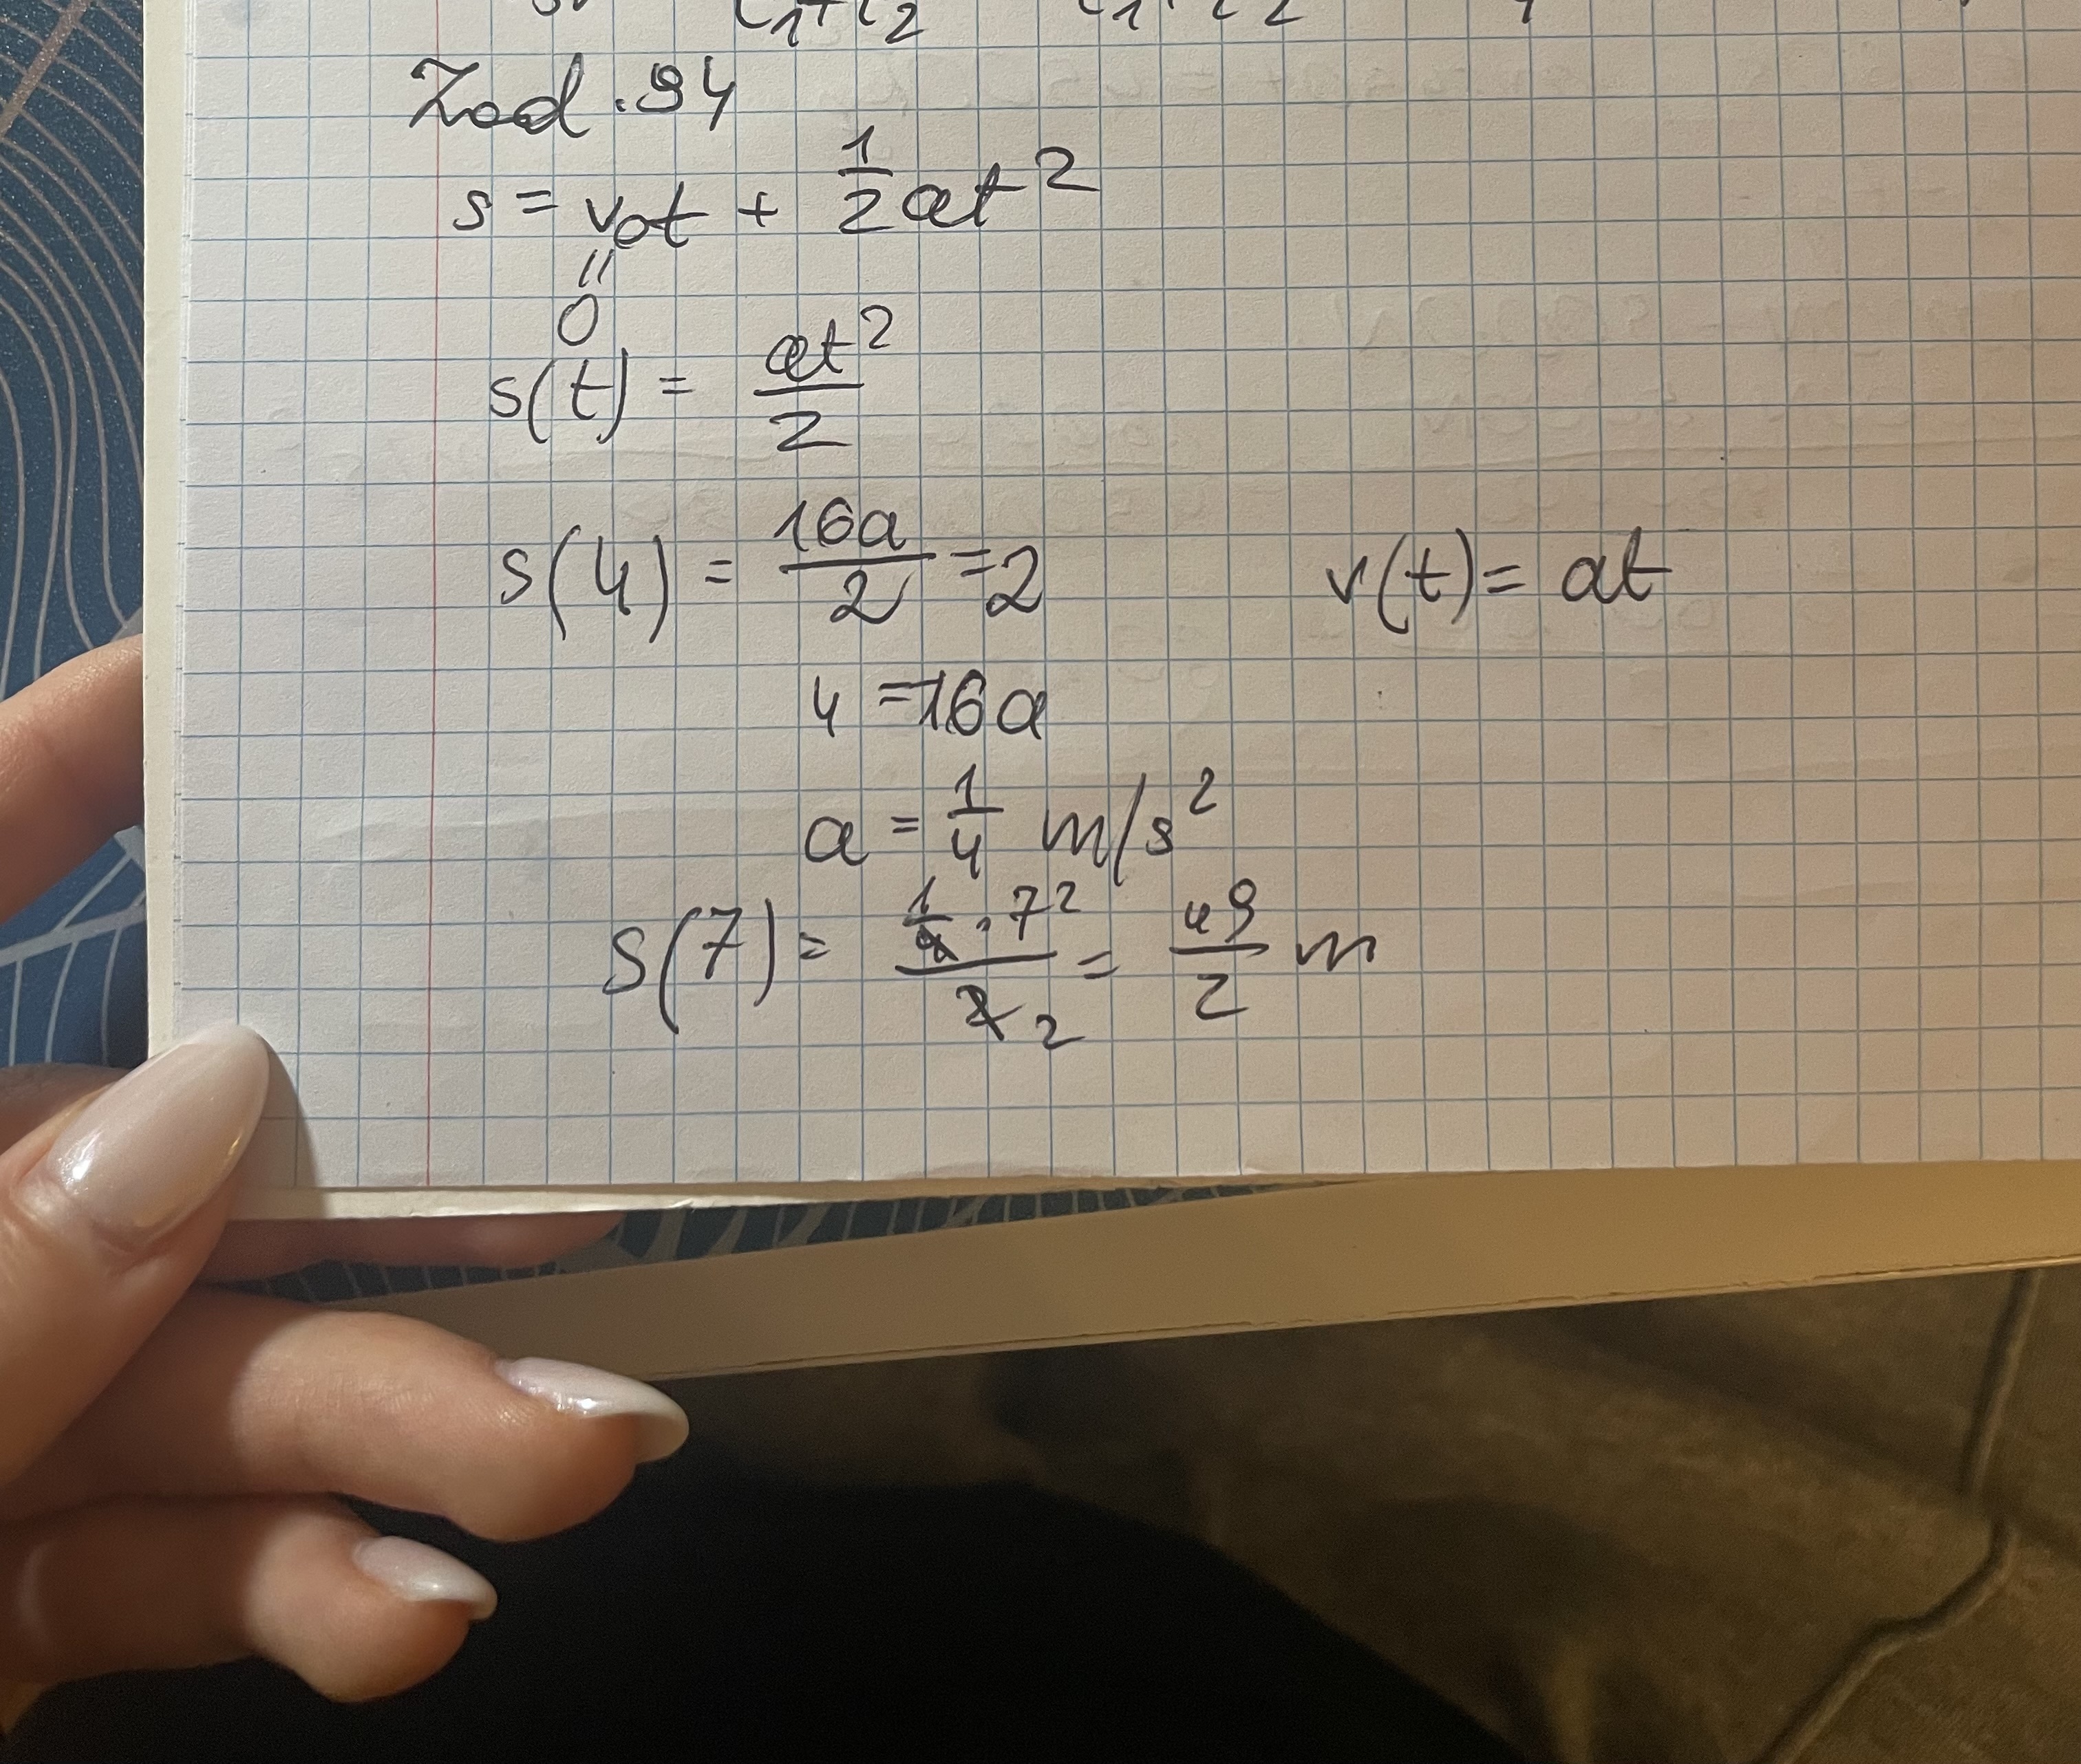 Zad. 94
s = v₀t + 1/2 at²
"
0
s(t) = at²/2
s(4) = 16a/2 = 2 v(t) = at
4 = 16a
a = 1/4 m/s²
s(7) = 1/4 · 7² / 2 2 = 49/2 m